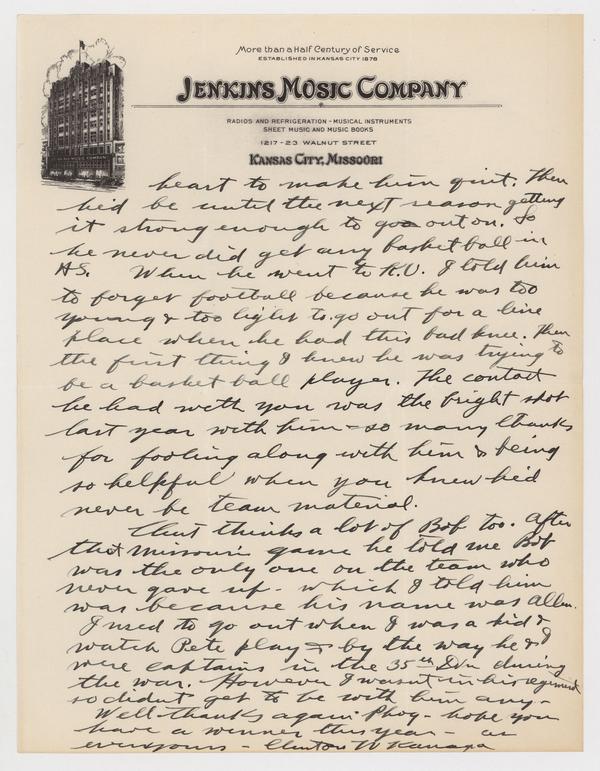 More than a Half Century of Service
ESTABLISHED IN KANSAS CITY 1878
JENKINS MUSIC COMPANY
RADIOS AND REFRIGERATION - MUSICAL INSTRUMENTS
SHEET MUSIC AND MUSIC BOOKS
1217-23 WALNUT STREET
KANSAS CITY, MISSOURI
heart to make him quit. Then
he'd be until the next season getting
it strong enough to go out on. So
he never did get any basket ball in
H.S. When he went to K.U. I told him
to forget football because he was too
young & too light to go out for a line
place when he had this bad knee. Then
the first thing I knew he was trying to
be a basket ball player. The contact
he had with you was the bright spot
last year with him - so many thanks
for fooling along with him & being
so helpful when you knew he'd
never be team material.
Clint thinks a lot of Bob too. After
that Missouri game he told me Bob
was the only one on the team who
never gave up - which I told him
was because his name was Allen.
I used to go out when I was a kid &
watch Pete play & by the way he & I
were captains in the 35th Div during
the war. However I wasn't in his regiment
so didn't get to be with him any -
Well thanks again Phog - hope you
have a winner this year - as
ever yours - Clinton W Kanaga